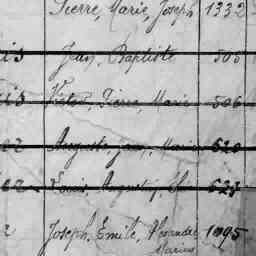 Pierre, Marie, Joseph 1332
Jean Baptiste 505
Victor, Pierre, Marie 506
Auguste, Jean, Marie 620
Louis, Auguste, 623
Joseph, Emile, Alexandre 1095
Marius